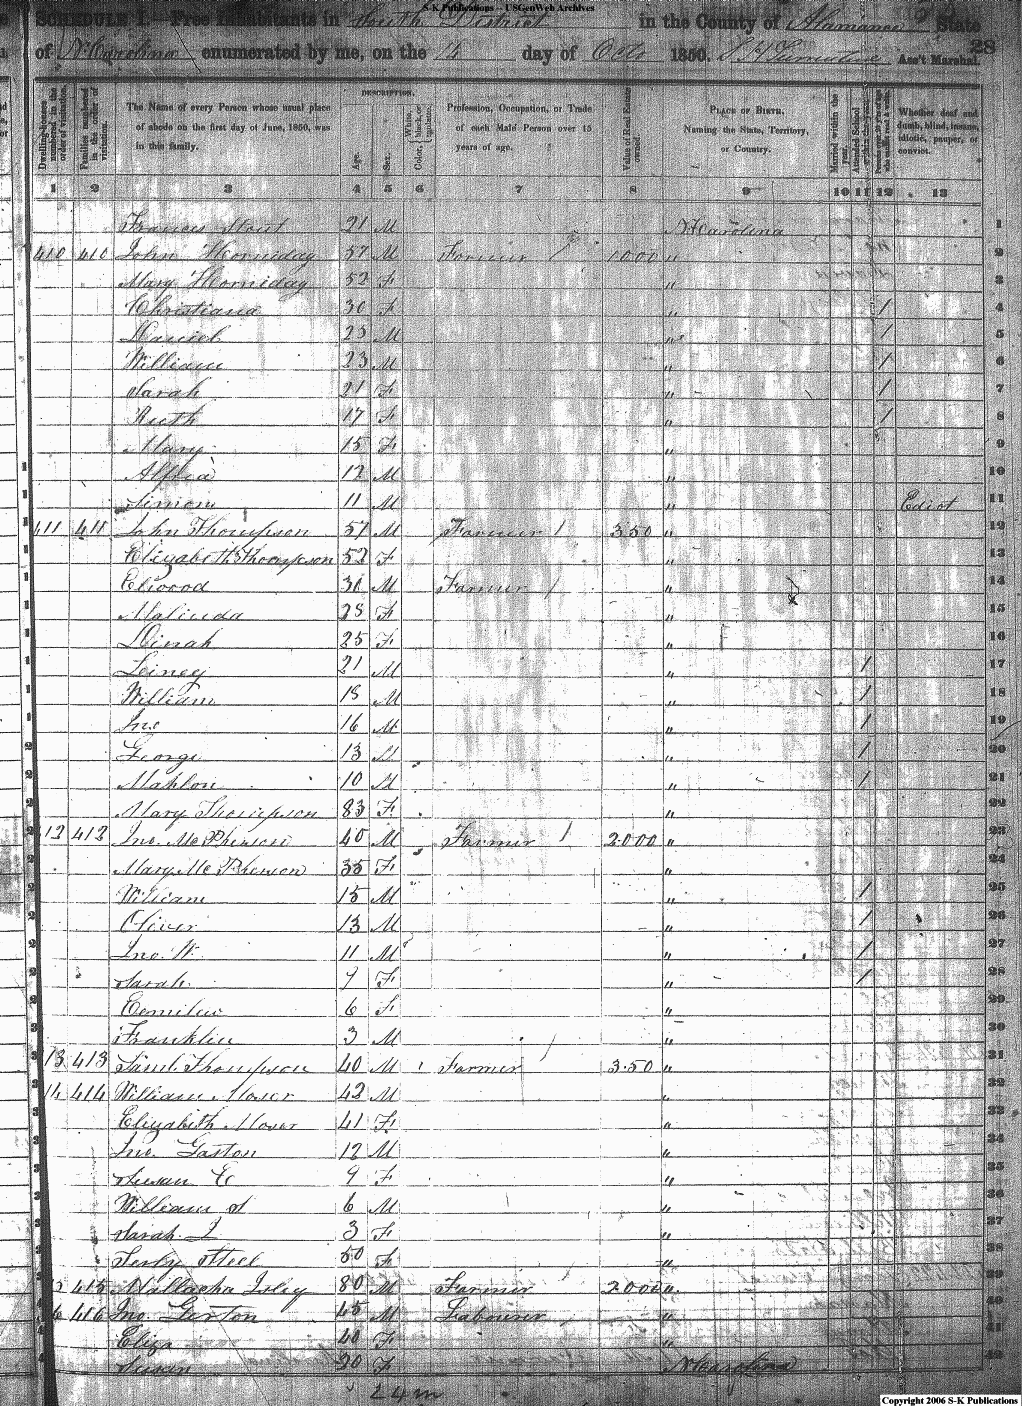 S-K Publications -- USGenWeb Archives
SCHEDULE I.—Free Inhabitants in South District in the County of Alamance State
of N. Carolina enumerated by me, on the 4 day of Octo 1850. Ass't Marshal.
28
Dwelling-houses numbered in the order of visitation.
Families numbered in the order of visitation.
The Name of every Person whose usual place of abode on the first day of June, 1850, was in this family.
DESCRIPTION.
Age.
Sex.
Color, White, black, or mulatto.
Profession, Occupation, or Trade of each Male Person over 15 years of age.
Value of Real Estate owned.
PLACE OF BIRTH, Naming the State, Territory, or Country.
Married within the year.
Attended School within the year.
Persons over 20 y'rs of age who cannot read & write.
Whether deaf and dumb, blind, insane, idiotic, pauper, or convict.
1 2 3 4 5 6 7 8 9 10 11 12 13
Frances Stout 21 M N Carolina 1
410 410 John Horniday 57 M Farmer / 1000 " 2
Mary Horniday 52 F " 3
Christiana 30 F " / 4
Daniel 25 M " / 5
William 23 M " / 6
Sarah 21 F " / 7
Ruth 17 F " / 8
Mary 15 F " 9
12 M " 10
Simon 11 M " Ediot 11
411 411 John Thompson 57 M Farmer / 350 " 12
Elizabeth Thompson 52 F " 13
Elwood 30 M Farmer / " 14
Malinda 28 F " 15
Dinah 25 F " 16
21 M " / 17
William 18 M " / 18
Jno 16 M " / 19
George 13 M " / 20
Mahlon 10 M " / 21
Mary Thompson 83 F " 22
12 412 Jno. McPherson 40 M Farmer / 2000 " 23
Mary McPherson 35 F " 24
William 15 M " / 25
Oliver 13 M " / 26
Jno. W. 11 M " / 27
Sarah 9 F " / 28
6 F " 29
Franklin 3 M " 30
13 413 Saml. Thompson 40 M Farmer / 350 " 31
14 414 William Moser 42 M " 32
Elizabeth Moser 41 F " 33
Jno. Gaston 12 M " 34
Susan E 9 F " 35
William S 6 M " 36
Sarah L 3 F " 37
Steel 50 F " 38
415 Isley 80 M Farmer 2000 " 39
6 416 Jno. Gerton 45 M Labourer " 40
Eliza 40 F " 41
Susan 20 F N Carolina 42
24 m
Copyright 2006 S-K Publications